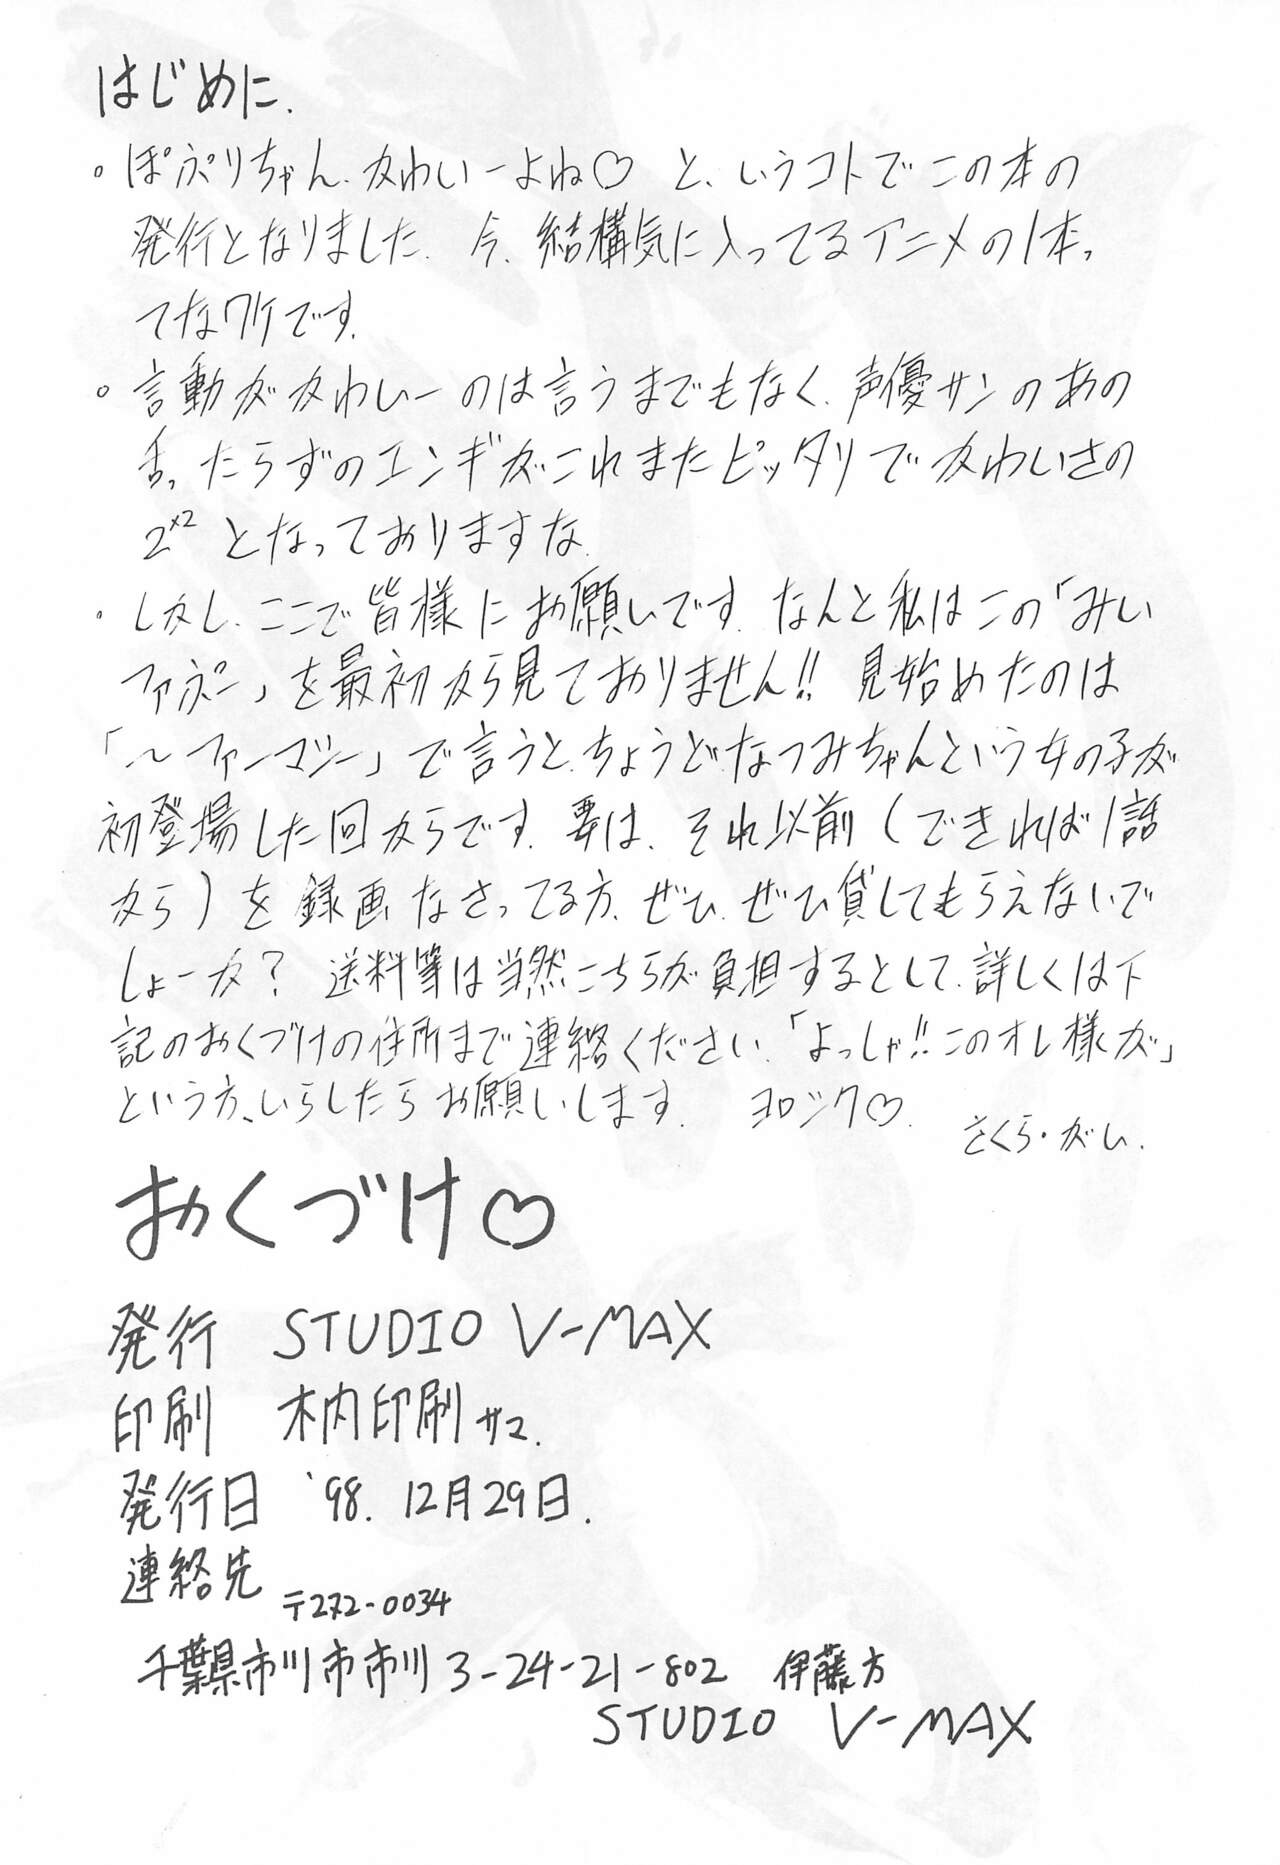 はじめに.
○ぽぷりちゃん、かわいーよね♡ と、いうコトでこの本の
発行となりました. 今、結構気に入ってるアニメの1本っ
てなワケです.
○言動がかわいーのは言うまでもなく、声優サンのあの
舌ったらずのエンギがこれまたピッタリでかわいさの
2×2 となっておりますな.
・しかし、ここで皆様にお願いです. なんと私はこの「みい
ファぷー」を最初から見ておりません!! 見始めたのは
「〜ファーマシー」で言うと、ちょうどなつみちゃんという女の子が
初登場した回からです. 要は、それ以前(できれば1話
から)を録画なさってる方、ぜひ、ぜひ貸してもらえないで
しょーか? 送料等は当然こちらが負担するとして、詳しくは下
記のおくづけの住所まで連絡ください.「よっしゃ!!このオレ様が」
という方、いらしたらお願いします. ヨロシク♡.
さくら・がい.
おくづけ♡
発行 STUDIO V-MAX
印刷 木内印刷サマ.
発行日 '98. 12月29日.
連絡先
〒272-0034
千葉県市川市市川3-24-21-802 伊藤方
STUDIO V-MAX